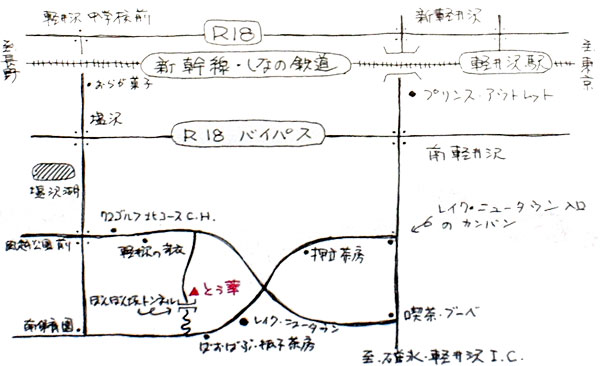 軽井沢中学校前
R18
新軽井沢
至長野
新幹線・しなの鉄道
軽井沢駅
至東京
おらが菓子
プリンス・アウトレット
塩沢
R18 バイパス
南軽井沢
塩沢湖
72ゴルフ北コースC.H.
レイク・ニュータウン入口
のカンバン
風越公園前
軽井沢の
押立茶房
とう華
ぽんぽん坂トンネル
喫茶・ブーベ
レイク・ニュータウン
南保育園
ばおばぶ・梛子茶房
至.碓氷・軽井沢I.C.